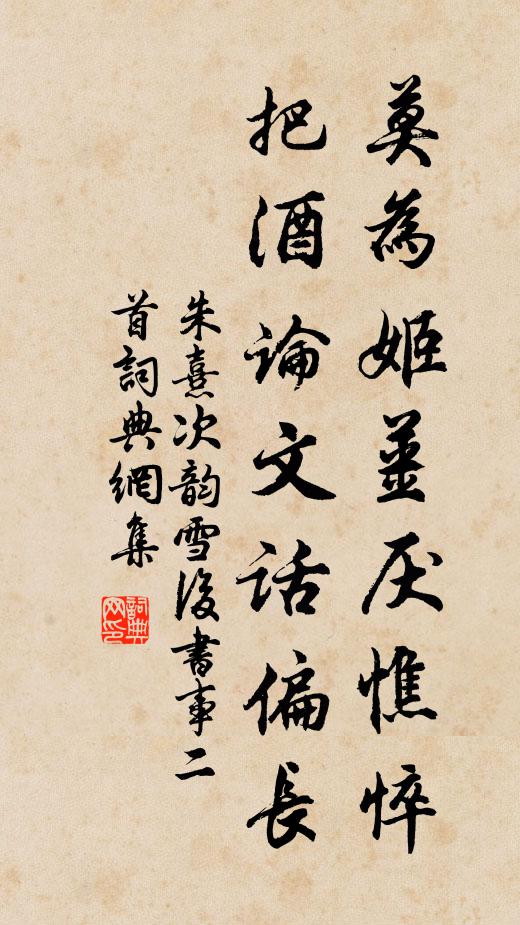 莫為姬薑厌憔悴
把酒論文話偏長
朱熹次韵雪後書事二
首詞典網集
詞典网印